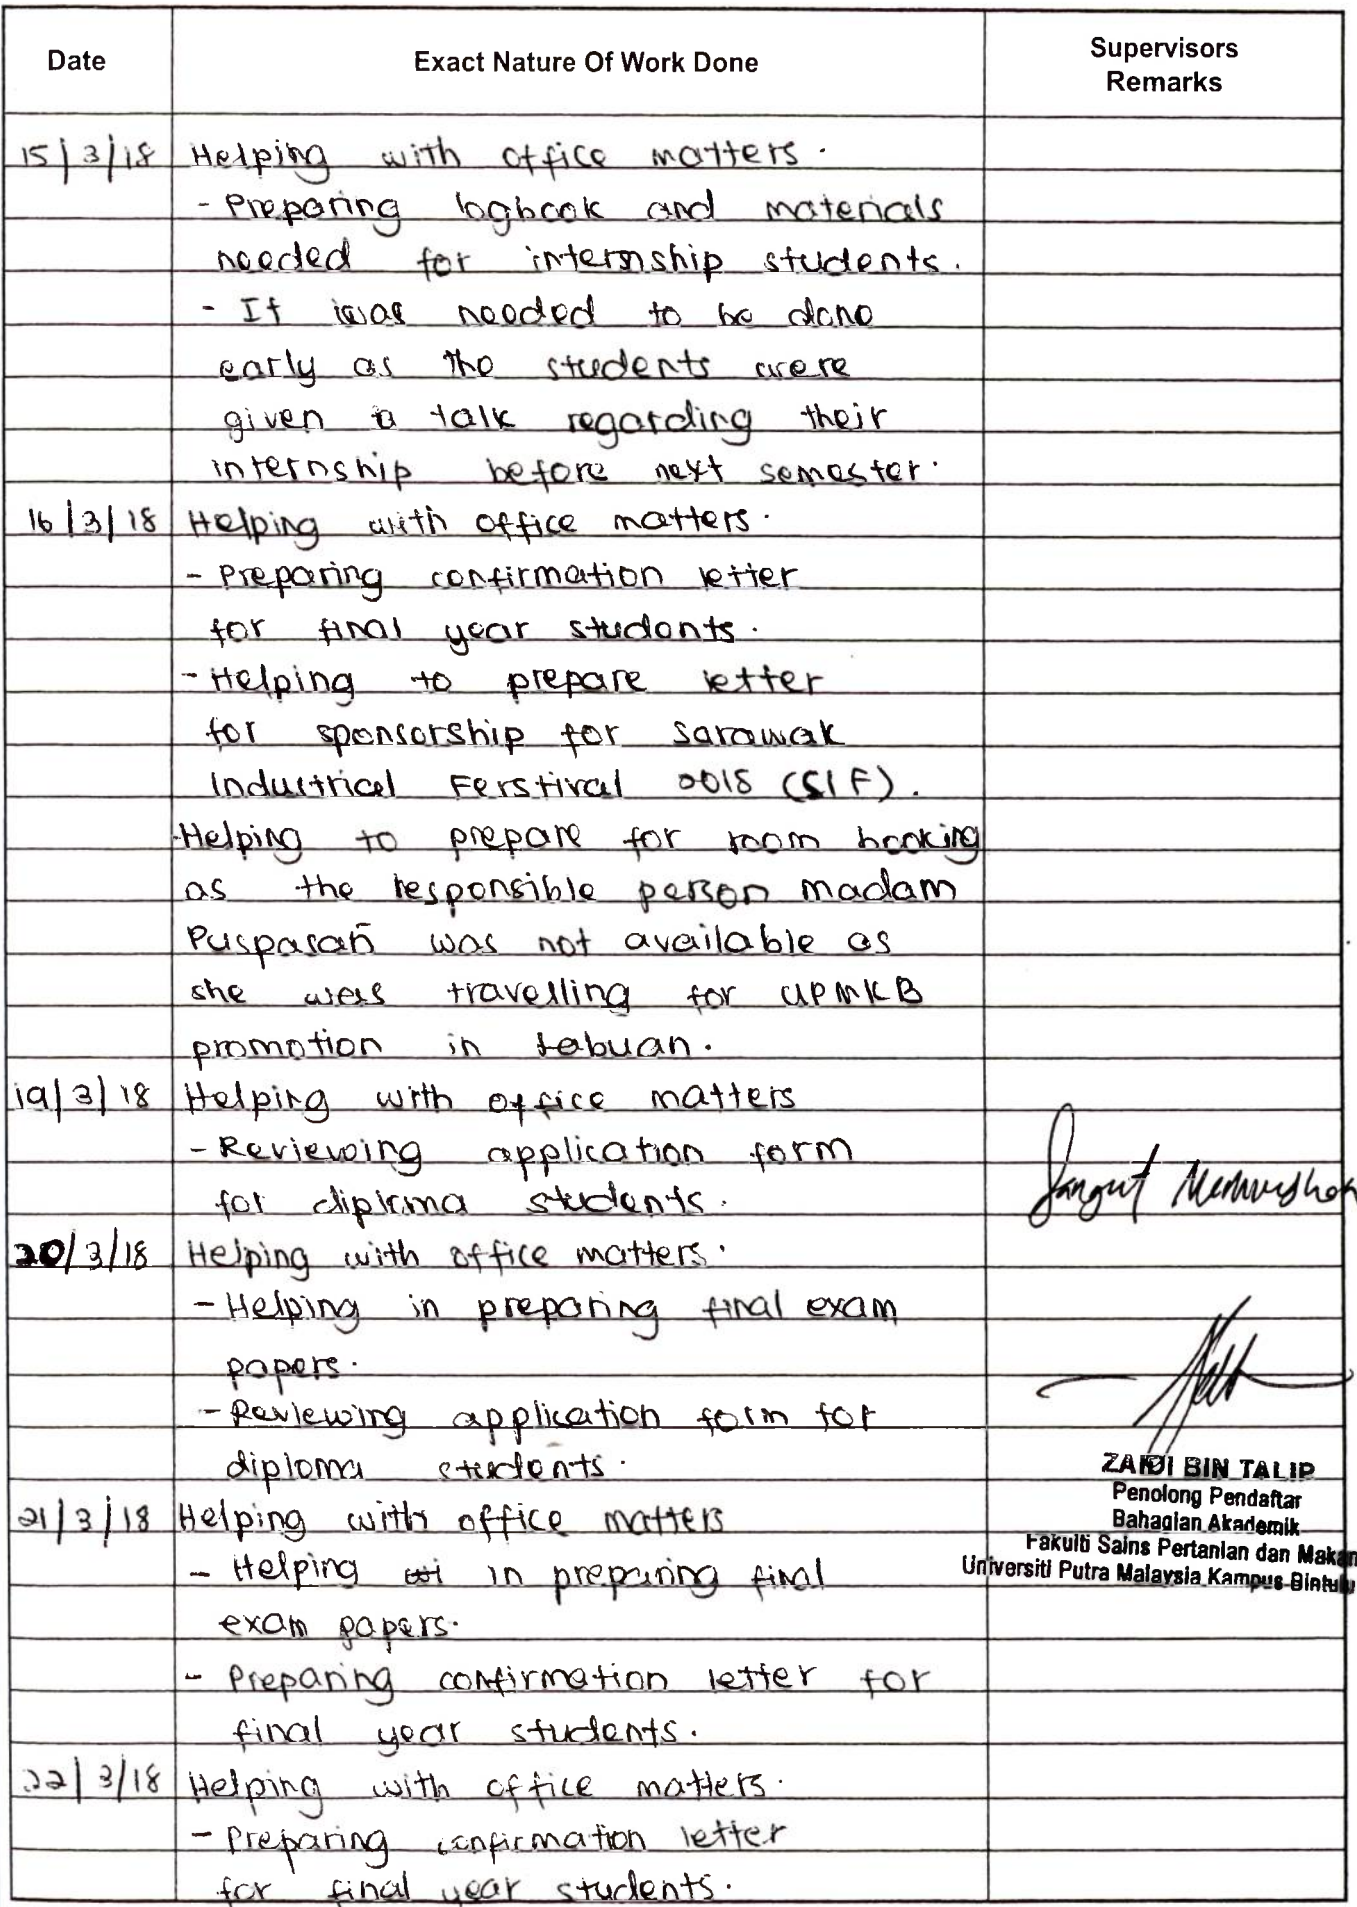 Date
Exact Nature Of Work Done
Supervisors
Remarks
15/3/18 Helping with office matters.
- Preparing logbook and materials
needed for internship students.
- It was needed to be done
early as the students were
given a talk regarding their
internship before next semester.
16/3/18 Helping with office matters.
- Preparing confirmation letter
for final year students.
- Helping to prepare letter
for sponsorship for Sarawak
Industrical Ferstival 2018 (SIF).
-Helping to prepare for room booking
as the responsible person madam
Puspasari was not available as
she was travelling for UPMKB
promotion in Labuan.
19/3/18 Helping with office matters
- Reviewing application form
for diploma students.
20/3/18 Helping with office matters.
- Helping in preparing final exam
papers.
- Reviewing application form for
diploma students.
ZAIDI BIN TALIP
Penolong Pendaftar
Bahagian Akademik
Fakulti Sains Pertanian dan Makan
Universiti Putra Malaysia Kampus Bintulu
21/3/18 Helping with office matters
- Helping in preparing final
exam papers.
- Preparing confirmation letter for
final year students.
22/3/18 Helping with office matters.
- Preparing confirmation letter
for final year students.